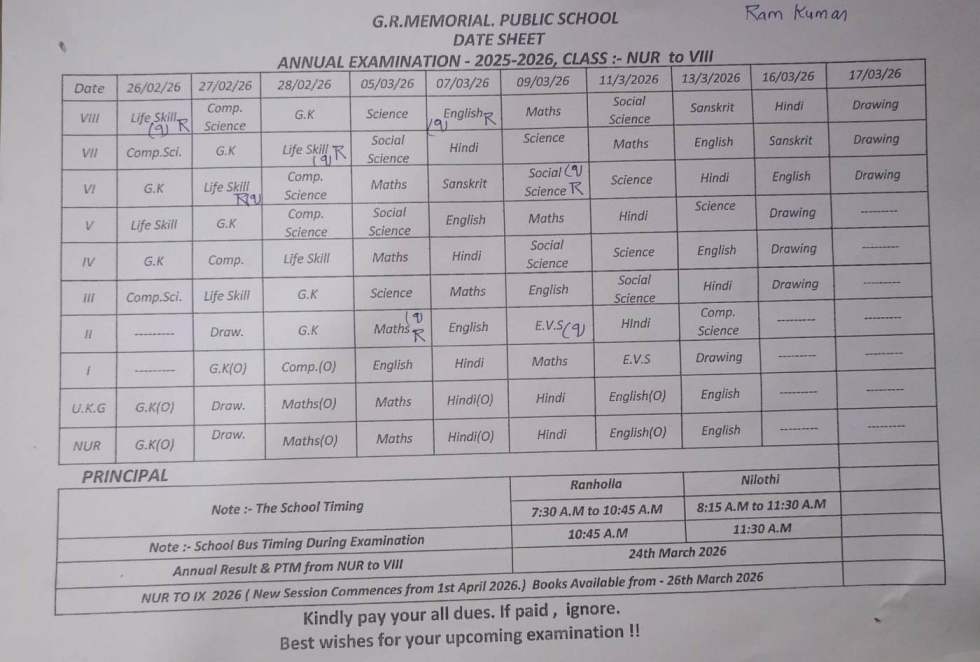 Ram Kumar
G.R.MEMORIAL. PUBLIC SCHOOL
DATE SHEET
ANNUAL EXAMINATION - 2025-2026, CLASS :- NUR to VIII
Date 26/02/26 27/02/26 28/02/26 05/03/26 07/03/26 09/03/26 11/3/2026 13/3/2026 16/03/26 17/03/26
VIII Life Skill (9) R Comp. Science G.K Science English R (9) Maths Social Science Sanskrit Hindi Drawing
VII Comp.Sci. G.K Life Skill R (9) Social Science Hindi Science Maths English Sanskrit Drawing
VI G.K Life Skill R(9) Comp. Science Maths Sanskrit Social (9) Science R Science Hindi English Drawing
V Life Skill G.K Comp. Science Social Science English Maths Hindi Science Drawing ---------
IV G.K Comp. Life Skill Maths Hindi Social Science Science English Drawing ---------
III Comp.Sci. Life Skill G.K Science Maths English Social Science Hindi Drawing ---------
II --------- Draw. G.K Maths (9) R English E.V.S (9) Hindi Comp. Science --------- ---------
I --------- G.K(O) Comp.(O) English Hindi Maths E.V.S Drawing --------- ---------
U.K.G G.K(O) Draw. Maths(O) Maths Hindi(O) Hindi English(O) English --------- ---------
NUR G.K(O) Draw. Maths(O) Maths Hindi(O) Hindi English(O) English --------- ---------
PRINCIPAL
Note :- The School Timing Ranholla Nilothi
7:30 A.M to 10:45 A.M 8:15 A.M to 11:30 A.M
Note :- School Bus Timing During Examination 10:45 A.M 11:30 A.M
Annual Result & PTM from NUR to VIII 24th March 2026
NUR TO IX 2026 ( New Session Commences from 1st April 2026.) Books Available from - 26th March 2026
Kindly pay your all dues. If paid , ignore.
Best wishes for your upcoming examination !!